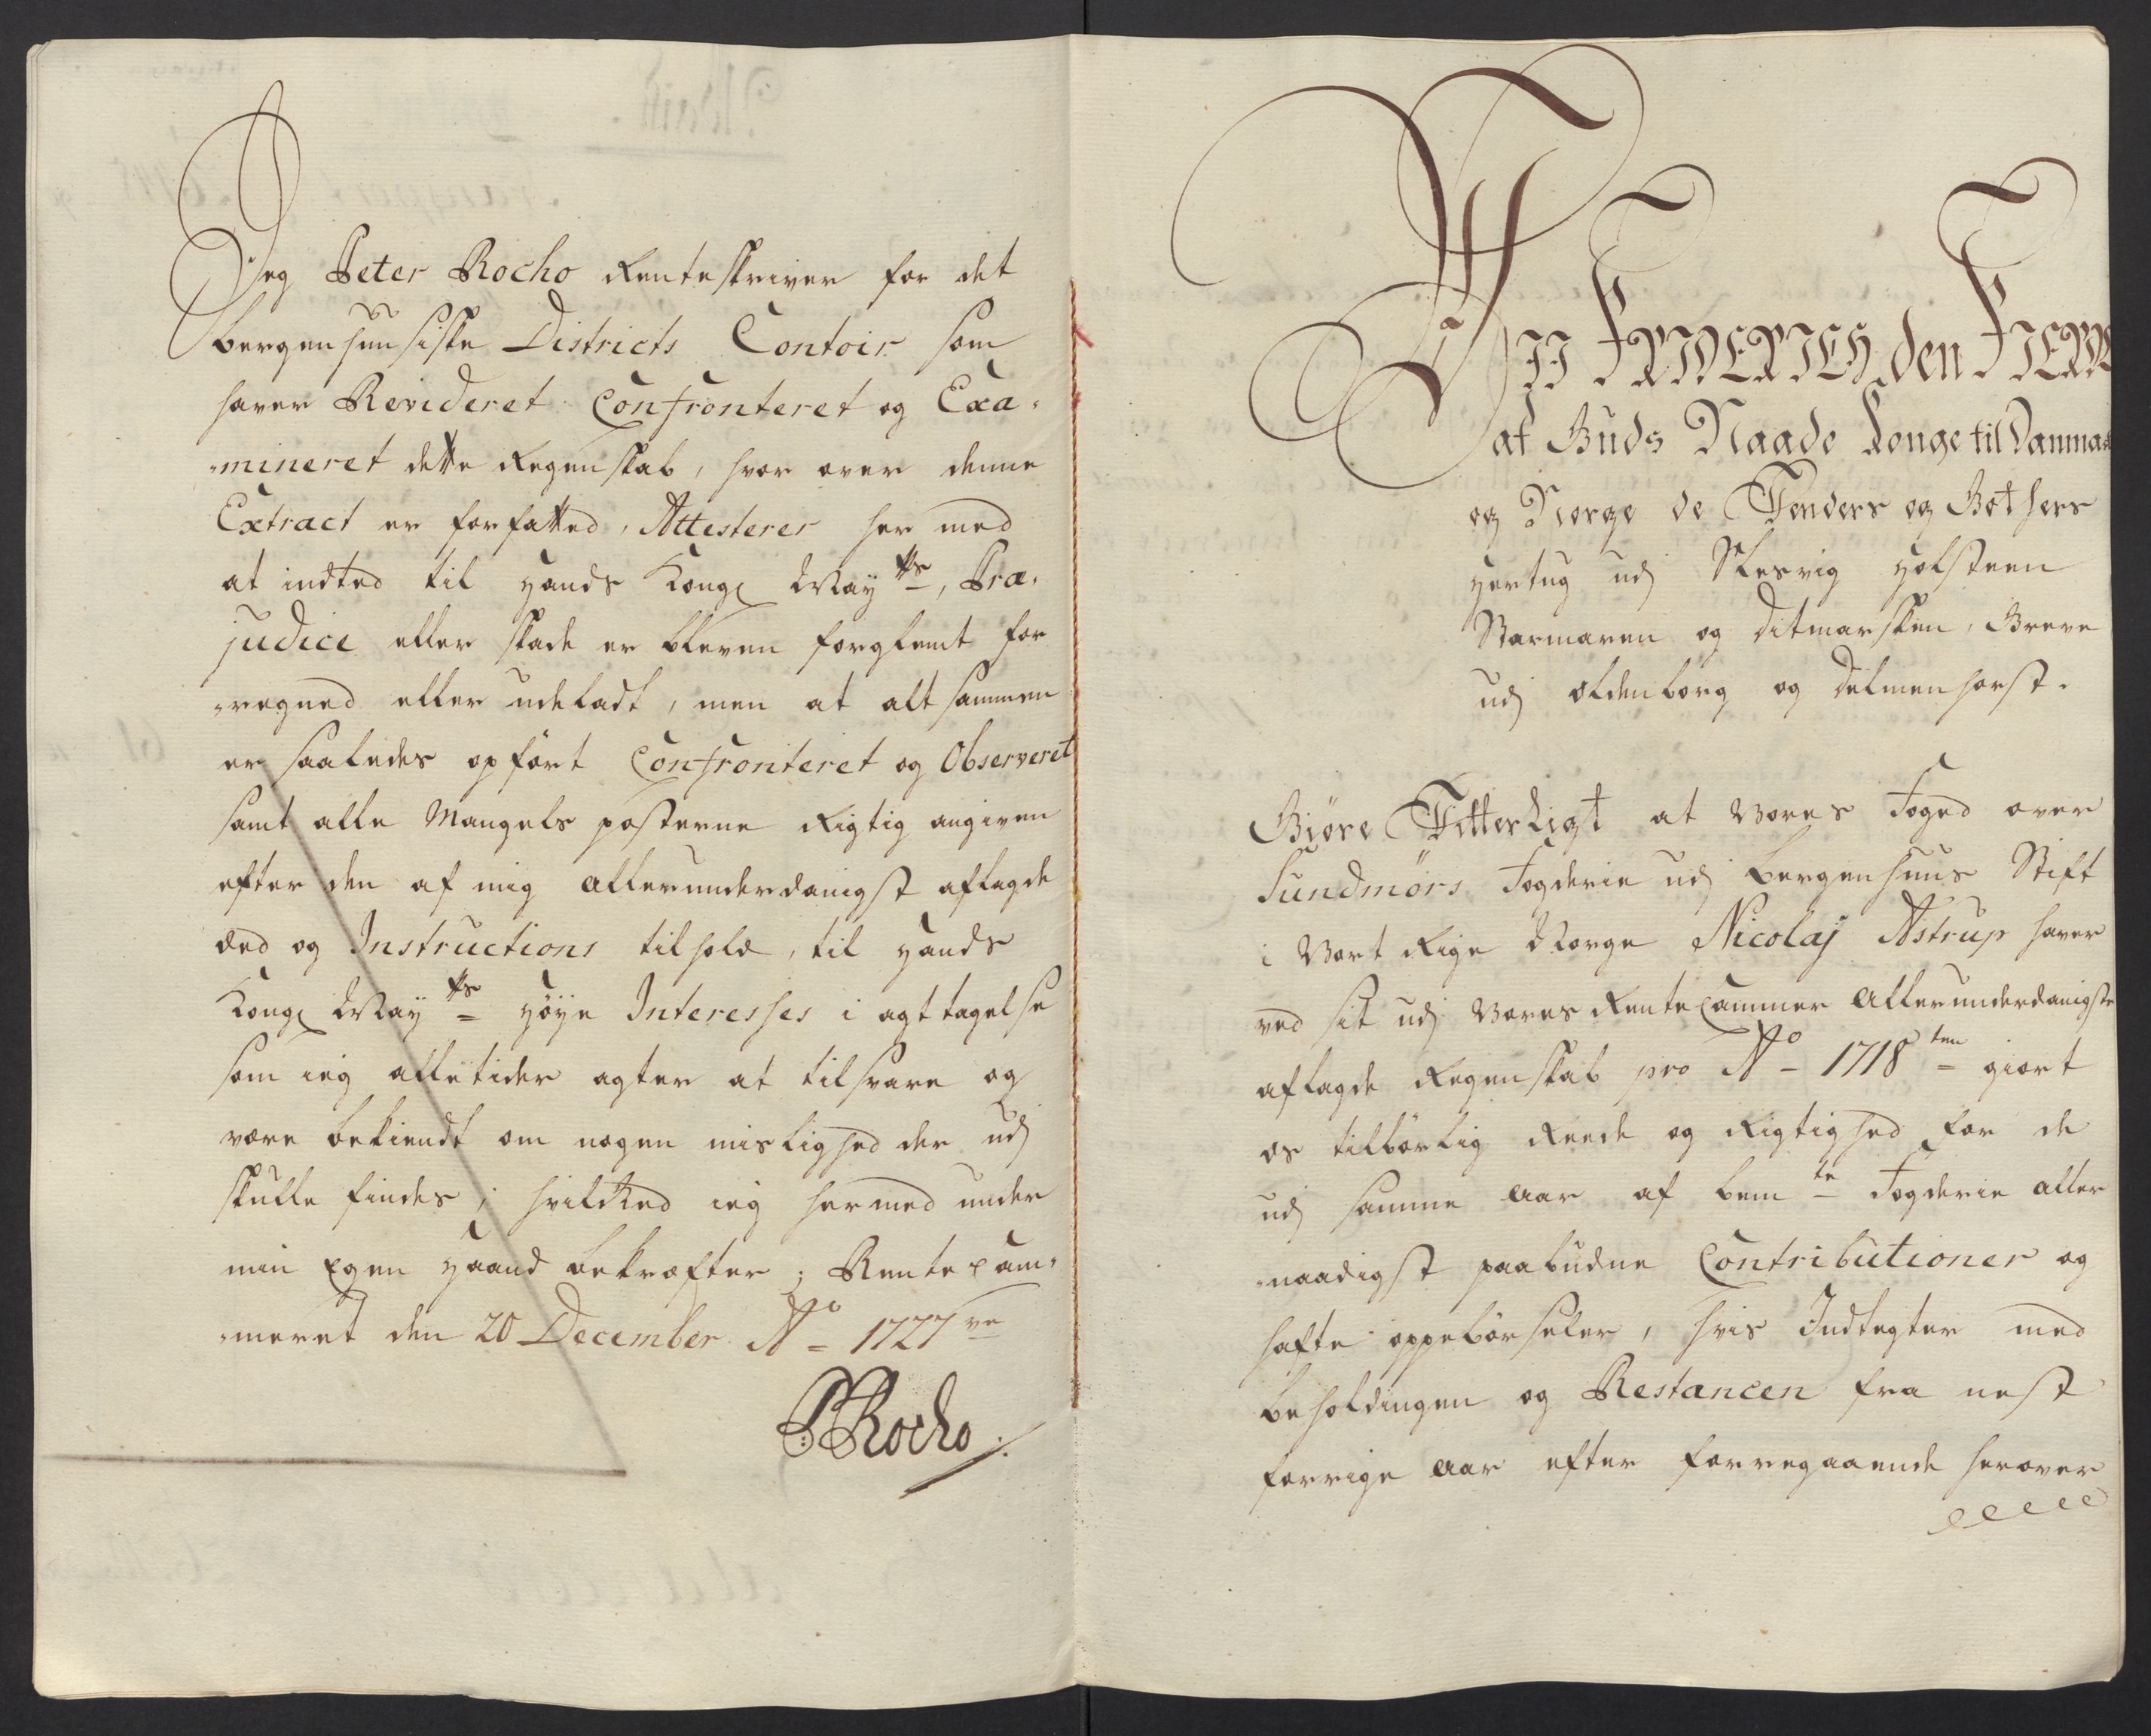 Jeg Peter Rocho Renteskriver for det
bergenhuusiske Districts Contoir som
haver Revideret Confronteret og Exa-
mineret dette Regenskab, hvor over denne
Extract er forfatted, Attesterer her med
at indted til Hands Kongl May:tts, Præ-
judice eller skade er bleven forglemt for
regned eller udeladt, men at alt sammen
er saaledes opført Confronteret og Observeret
samt alle Mangels posterne Rigtig angiven
efter den af mig allerunderdanigst aflagde
Eed og Instructions tilhold, til Hands
Kongl May:tts Høye Interesses i agt tagelse
som ieg alletider agter at tilsvare og
være bekiendt om nogen mislighed der udj
skulle findes, hvilcked ieg hermed under
min Egen Haand bekræfter; Rentecam-
meret den 20 December A:o 1727ve
PRocho
Wii FRIDERICH den FIERD
af Guds Naade Konge til Danmar
og Norge de Venders og Gothers
Hertug udj Slesvig Holsteen
Stormaren og Ditmarsken, Greve
udj Oldenborg og Delmenhorst.
Giøre Vitterligt at Vores Foged over
Sundmørs Fogderie udj bergenhuus Stift
i Vort Rige Norge Nicolaj Astrup haver
ved sit udj Vores RenteCammer allerunderdanigste
aflagde Regenskab pro A:o 1718ten giort
os tilbørlig Reede og Rigtighed for de
udj samme aar af bem:te Fogderie aller
naadigst paabudne Contributioner og
hafte oppebørseler, hvis Indtegter med
beholdingen og Restancen fra nest
forrige aar efter forregaaende herover